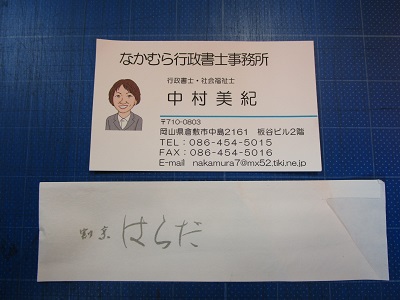 なかむら行政書士事務所
行政書士・社会福祉士
中村美紀
〒710-0803
岡山県倉敷市中島2161 板谷ビル2階
TEL：086-454-5015
FAX：086-454-5016
E-mail nakamura7@mx52.tiki.ne.jp
割烹 はらだ